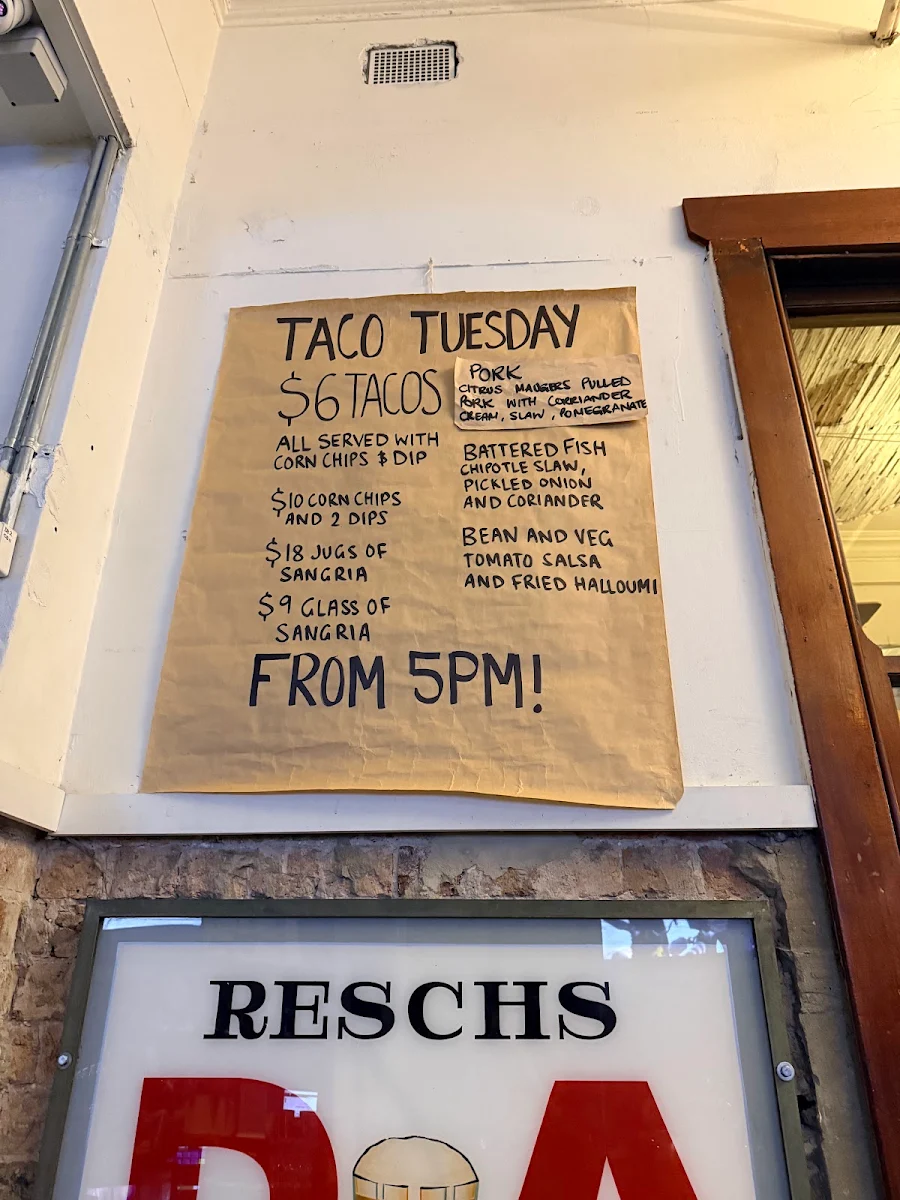 TACO TUESDAY
$6 TACOS
ALL SERVED WITH
CORN CHIPS & DIP
$10 CORN CHIPS
AND 2 DIPS
$18 JUGS OF
SANGRIA
$9 GLASS OF
SANGRIA
PORK
CITRUS MAUGERS PULLED
PORK WITH CORRIANDER
CREAM, SLAW, POMEGRANATE
BATTERED FISH
CHIPOTLE SLAW,
PICKLED ONION
AND CORIANDER
BEAN AND VEG
TOMATO SALSA
AND FRIED HALLOUMI
FROM 5PM!
RESCHS